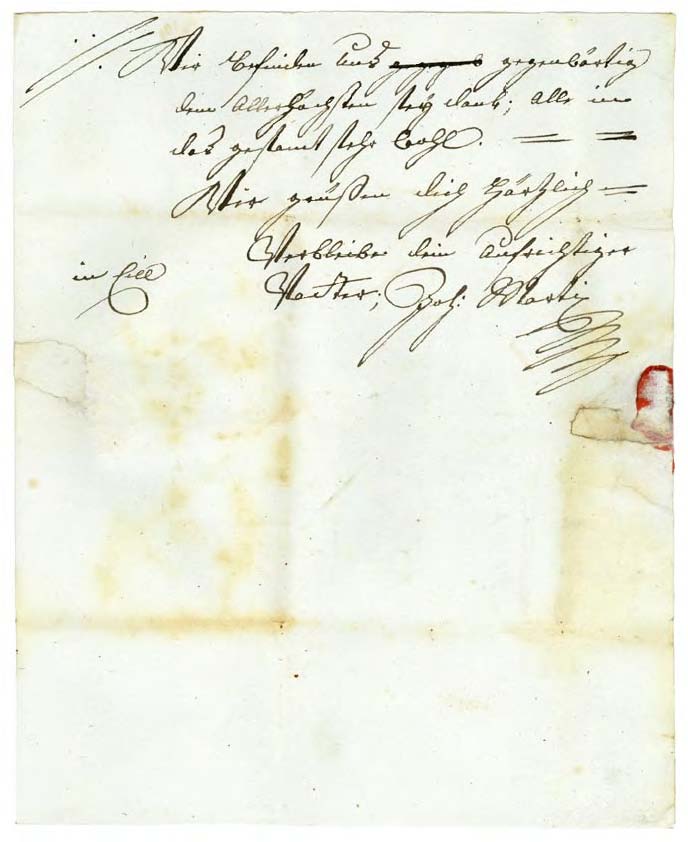 Wir befinden uns gegenwärtig
dem Allerhöchsten sey dank; Alle in
das gesamt sehr wohl.
Wir grüßen dich Härtzlich
Verbleibe dein Aufrichtiger
in Eile Vatter; Joh: Martin